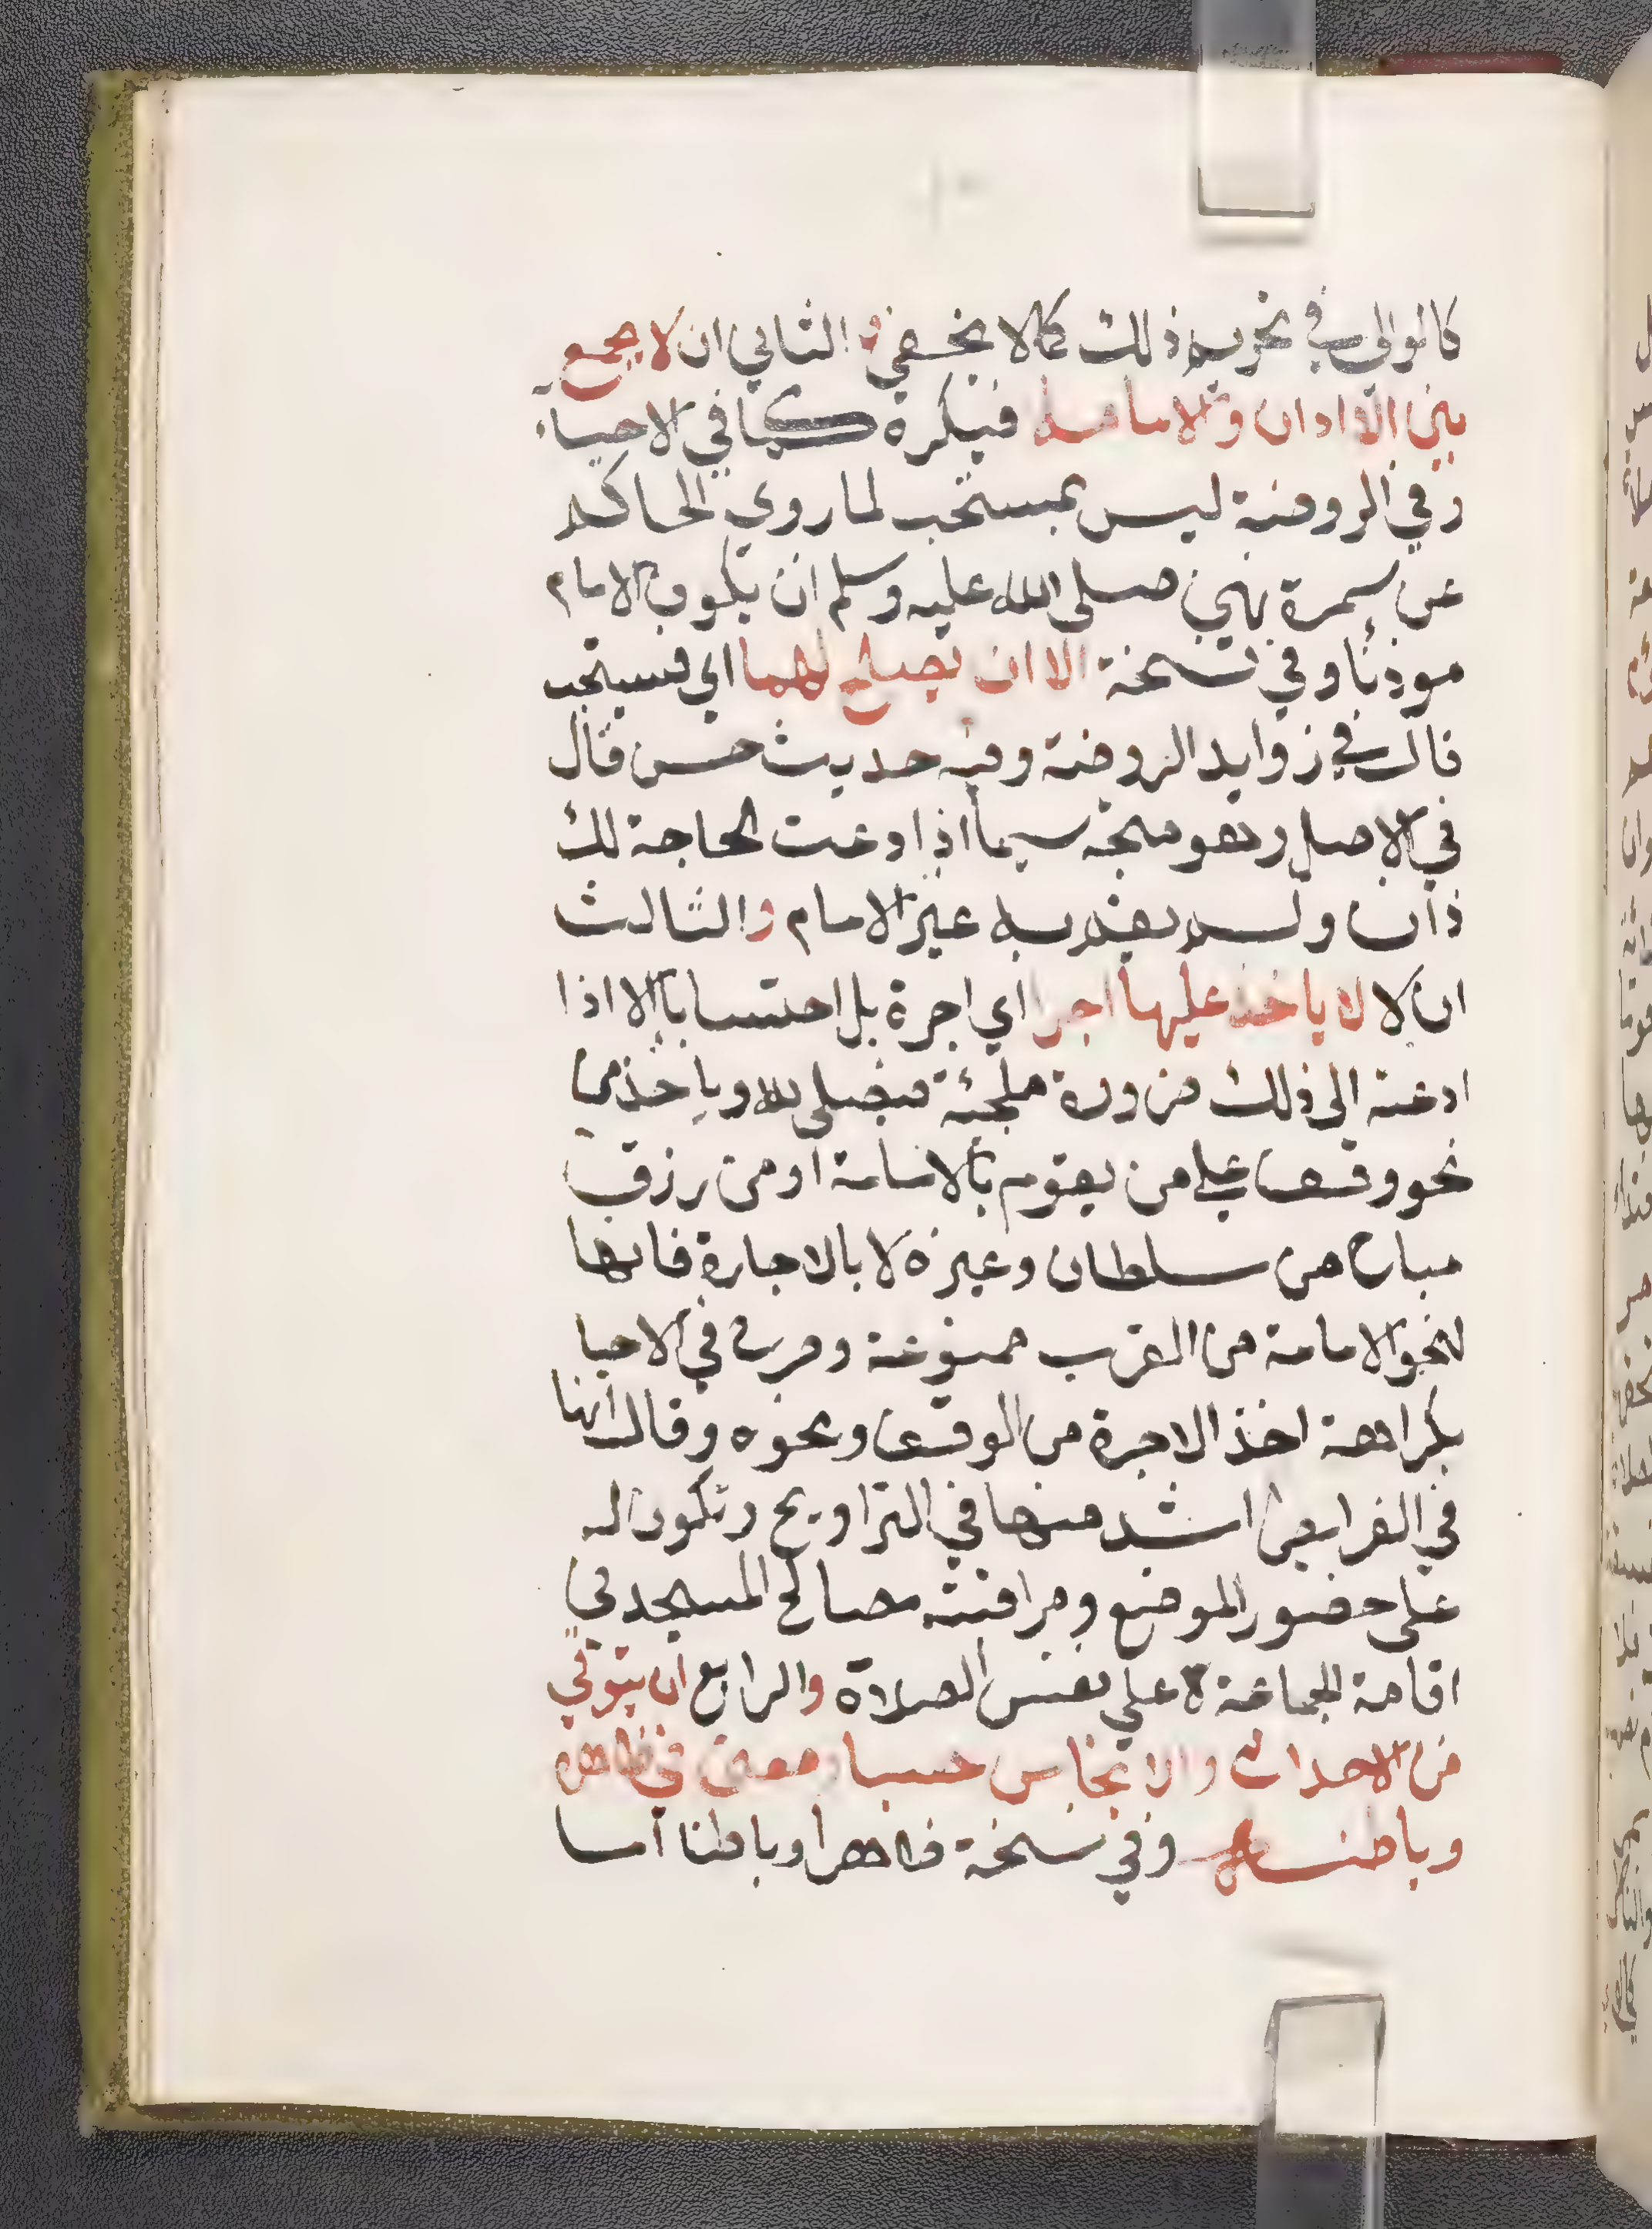 كالوالي في تحريم ذلك كما لا يخفي والثاني ان لا يجمع
بين الاذان والامامة فيكره كما في الاحياء
وفي الروضة ليس بمستحب لما روي الحاكم
عن سمرة نهي صلى الله عليه وسلم ان يكون الامام
موذنا وفي نسخة الا ان يصلح لهما اي فيستحب
قال في زوايد الروضة وفيه حديث حسن قال
في الاصل وهو متجه سيما اذا دعت لحاجة لك
ذان ولم يقم به غير الامام والثالث
ان لا لا ياخذ عليها اجرا اي اجرة بل احتسابا الا اذا
ادعته الى ذلك ضرورة ملجئة فيصلي لله وياخذ من
نحو وقف علي من يقوم بالامامة او من رزق
مباح من سلطان وغيره لا بالاجارة فانها
لنحو الامامة من القرب ممنوعة وصرح في الاحيا
بكراهة اخذ الاجرة من الوقف ونحوه وقال انها
في الفرايض اشد منها في التراويح وتكون له
على حضور الموضع ومراقبته مصالح المسجد في
اقامة للجماعة لا علي نفس الصلاة والرابع ان يتوقي
من الاحداث والانجاس حسا ومعنى في ظاهره
وباطنه وفي نسخة ظاهرا وباطنا اما